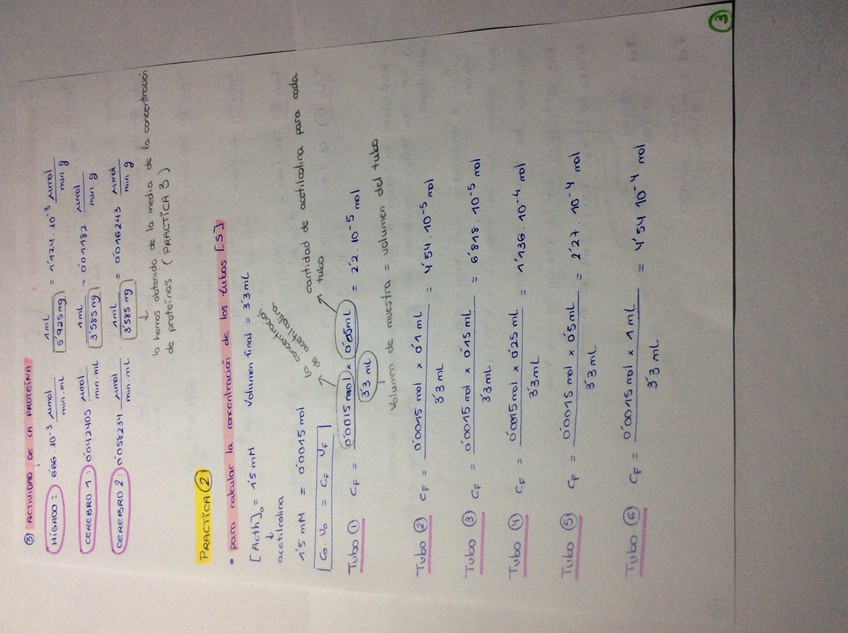 ③ ACTIVIDAD DE LA PROTEÍNA
HÍGADO: 6'66 · 10⁻³ µmol / min · mL · 1mL / 5'925 mg = 1'124 · 10⁻³ µmol / min g
CEREBRO 1: 0'042405 µmol / min mL · 1mL / 3'585 mg = 0'01182 µmol / min g
CEREBRO 2: 0'058234 µmol / min mL · 1mL / 3'585 mg = 0'016243 µmol / min g
lo hemos obtenido de la media de la concentración
de proteínas (PRACTICA 3)
PRACTICA ②
• para calcular la concentración de los tubos [S]
[Acth]₀ = 1'5 mM Volumen final = 3'3 mL
acetilcolina
1'5 mM = 0'0015 mol
concentración de acetilcolina
cantidad de acetilcolina para cada
tubo
C₀ · V₀ = CF · VF
Tubo ① CF = 0'0015 mol × 0'05mL / 3'3 mL = 2'2 · 10⁻⁵ mol
Volumen de muestra = volumen del tubo
Tubo ② CF = 0'0015 mol × 0'1 mL / 3'3 mL = 4'54 · 10⁻⁵ mol
Tubo ③ CF = 0'0015 mol × 0'15 mL / 3'3 mL = 6'818 · 10⁻⁵ mol
Tubo ④ CF = 0'0015 mol × 0'25 mL / 3'3 mL = 1'136 · 10⁻⁴ mol
Tubo ⑤ CF = 0'0015 mol × 0'5 mL / 3'3 mL = 2'27 · 10⁻⁴ mol
Tubo ⑥ CF = 0'0015 mol × 1 mL / 3'3 mL = 4'54 10⁻⁴ mol
③